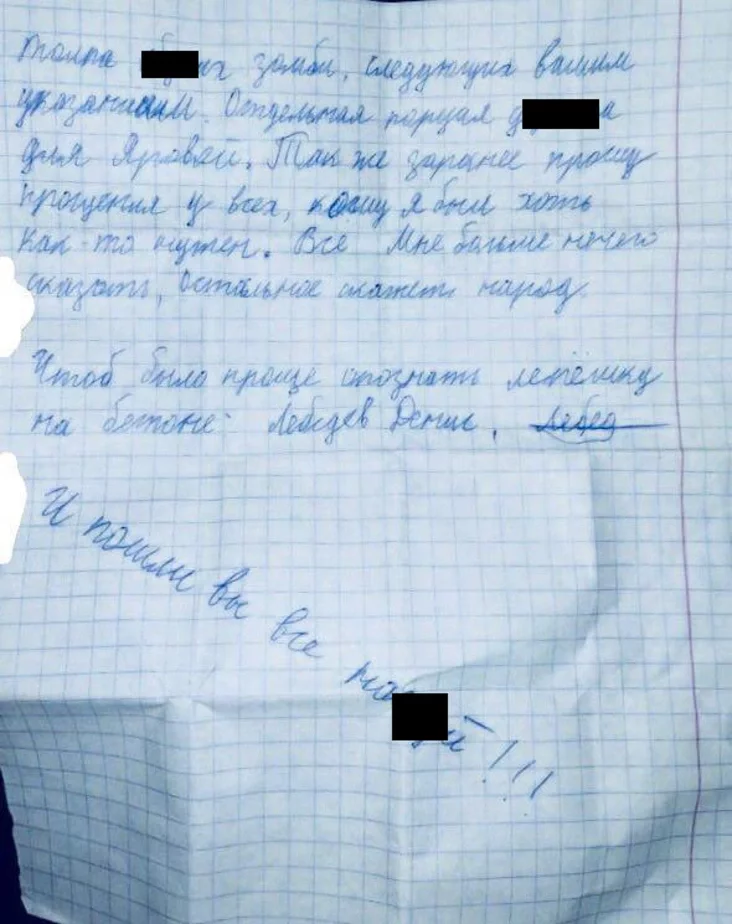 толпа их зомби, следующих вашим
указаниям. Отдельная порция д а
для Яровой. Так же заранее прошу
прощения у всех, кому я был хоть
как то нужен. Все Мне больше нечего
сказать, Остальное скажет народ.
Чтоб было проще опознать лепёшку
на бетоне: Лебедев Денис. Лебед
И пошли вы все на й!!!